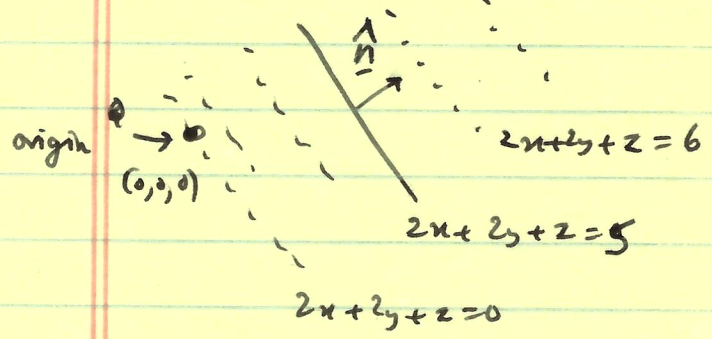 n̂
origin
(0,0,0)
2x+2y+z=6
2x+2y+z=5
2x+2y+z=0